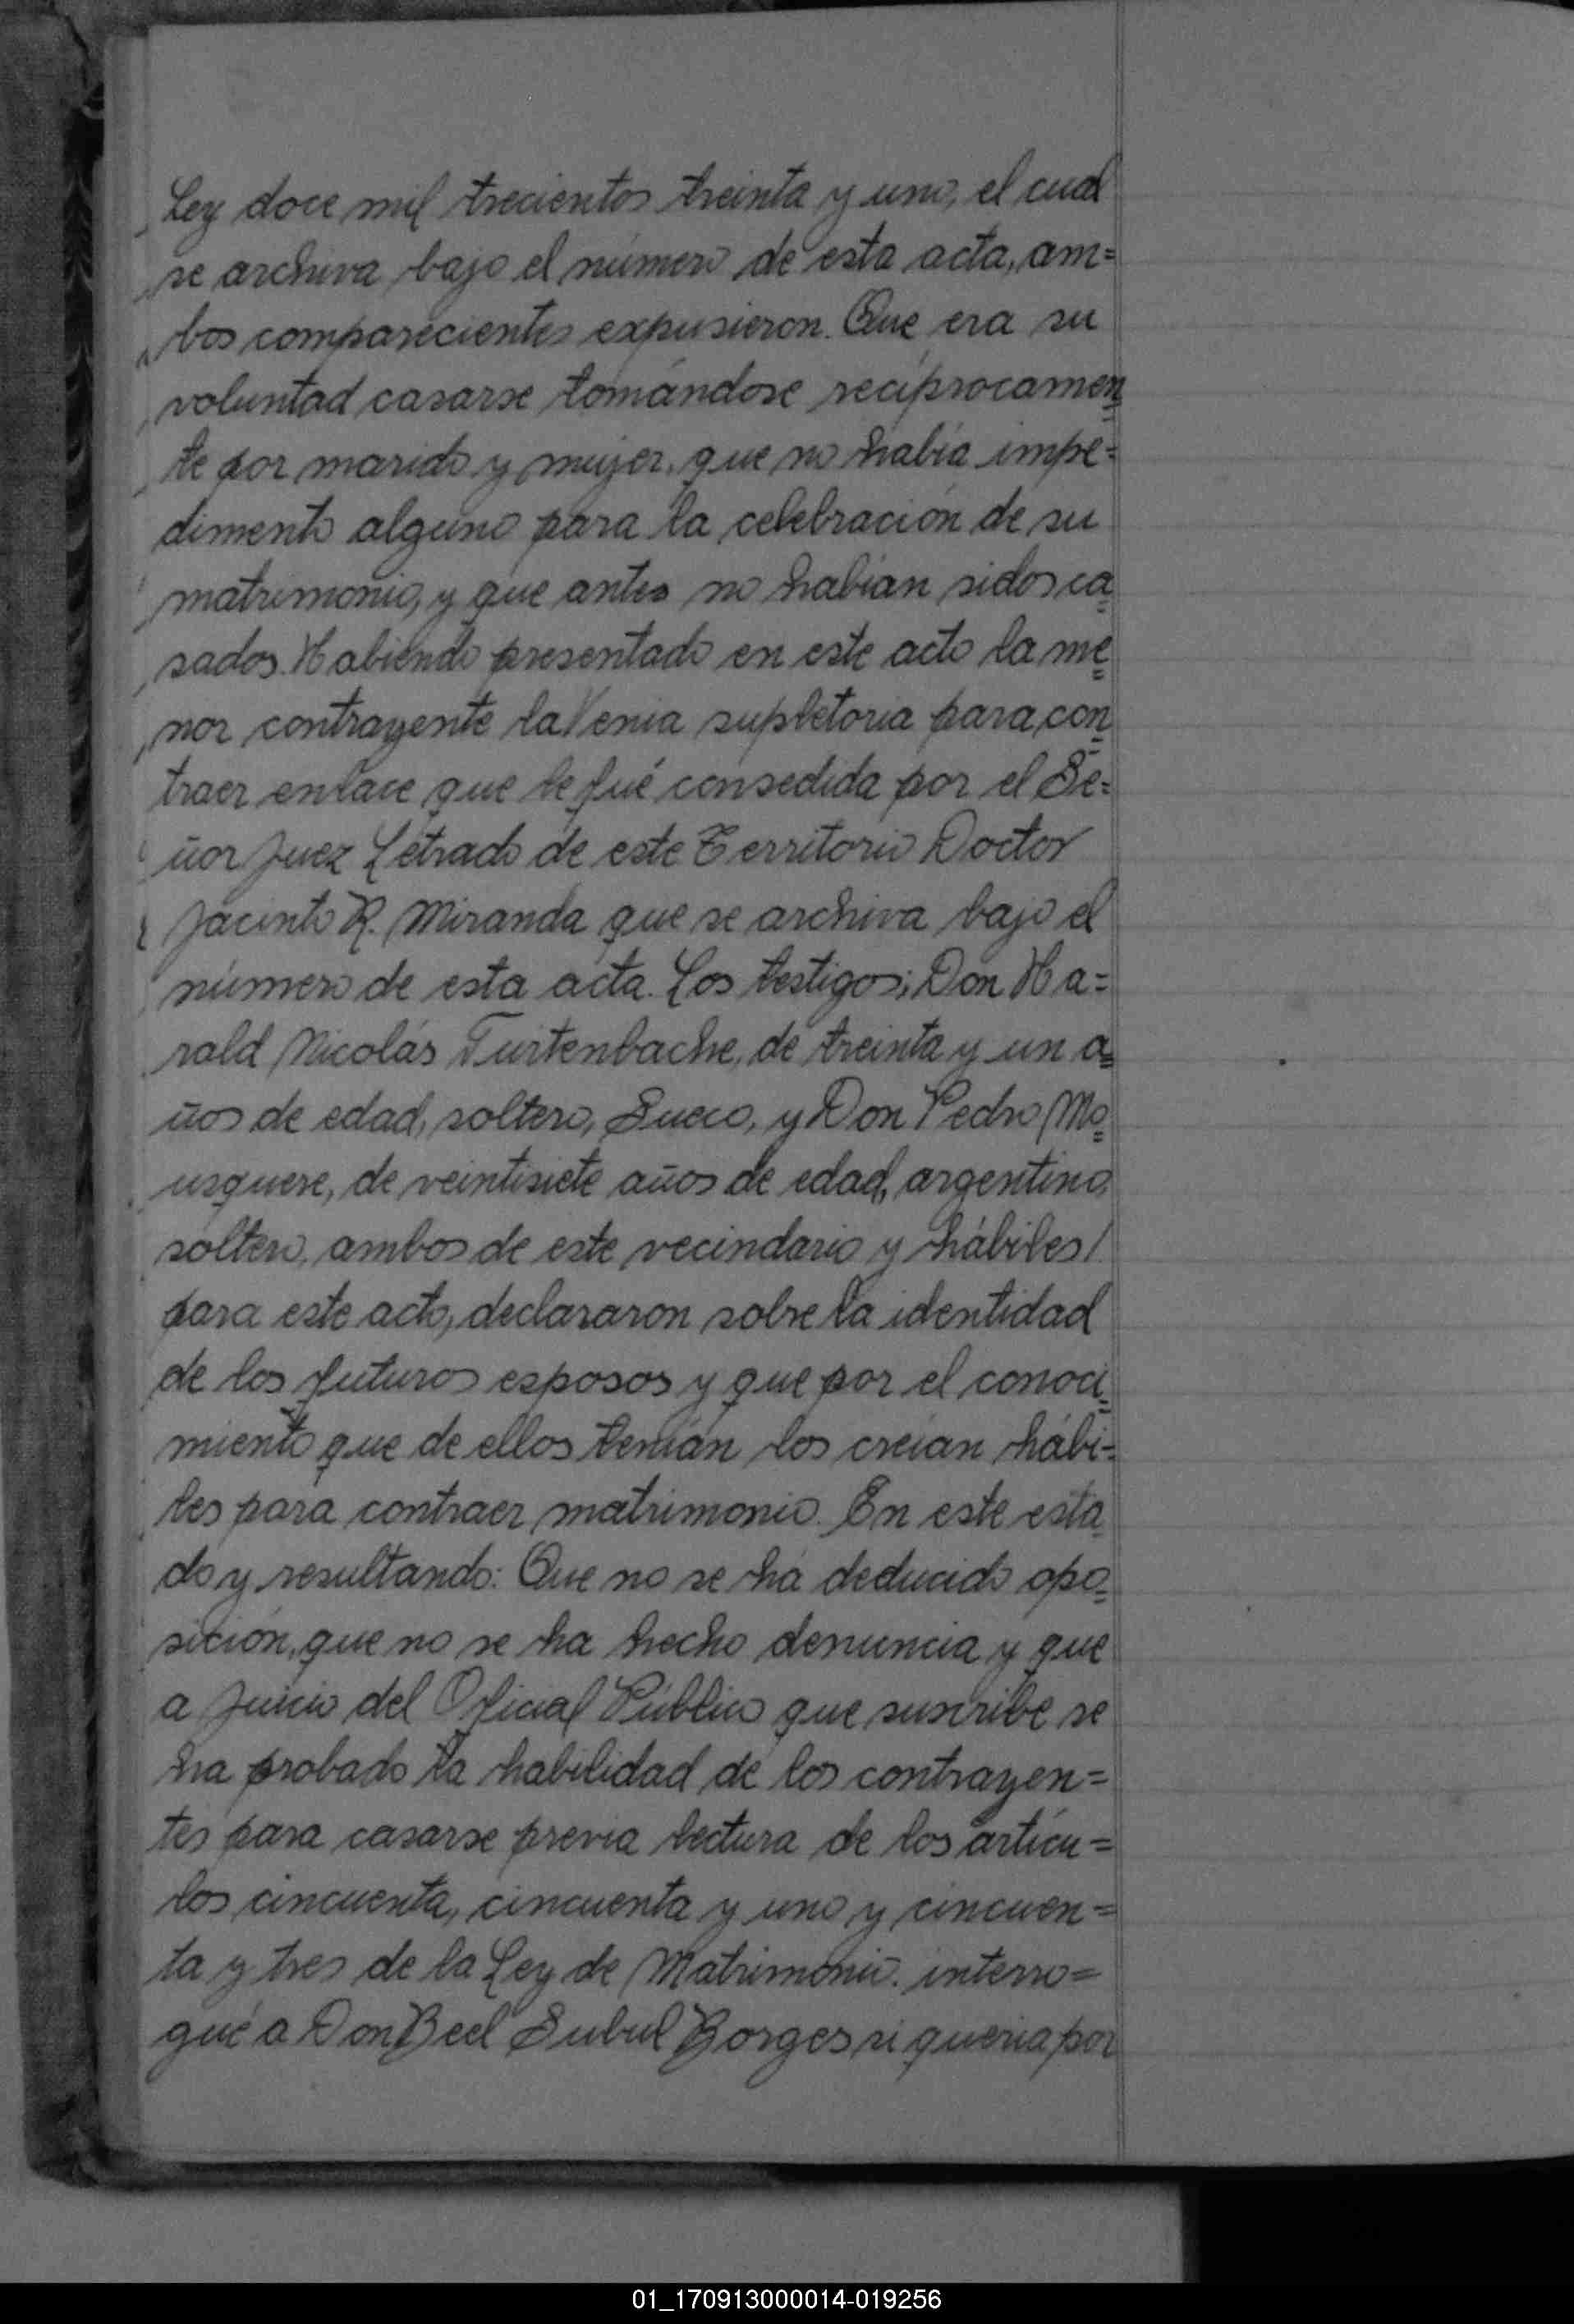 Ley doce mil trecientos treinta y uno, el cual
se archiva bajo el número de esta acta, am=
bos comparecientes expusieron. Que era su
voluntad casarse tomándose recíprocamen=
te por marido y mujer, que no había impe=
dimento alguno para la celebración de su
matrimonio, y que antes no habían sidos ca=
sados. Habiendo presentado en este acto la me=
nor contrayente la Venia supletoria para con=
traer enlace que le fué consedida por el Se=
ñor Juez Letrado de este Territorio Doctor
Jacinto R. Miranda que se archiva bajo el
número de esta acta. Los testigos; Don Ha=
rald Nicolás Turtenbache, de treinta y un a=
ños de edad, soltero, Sueco, y Don Pedro Mo=
usquere, de veintisiete años de edad, argentino,
soltero, ambos de este vecindario y hábiles/
para este acto, declararon sobre la identidad
de los futuros esposos y que por el conoci=
miento que de ellos tenían los creían hábi=
les para contraer matrimonio. En este esta=
do y resultando: Que no se há deducido opo=
sición, que no se ha hecho denuncia y que
a juicio del Oficial Público que suscribe se
ha probado la habilidad de los contrayen=
tes para casarse previa lectura de los artícu=
los cincuenta, cincuenta y uno y cincuen=
ta y tres de la Ley de Matrimonio. interro=
gué a Don Beel Subul Borges si quería por
01_170913000014-019256